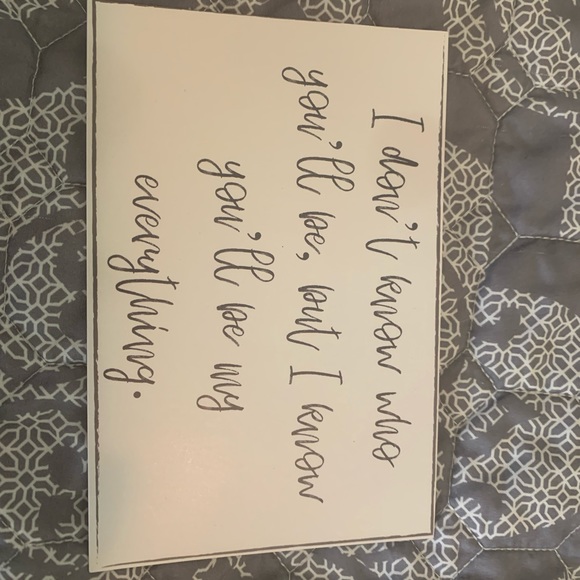 I don't know who
you'll be, but I know
you'll be my
everything.